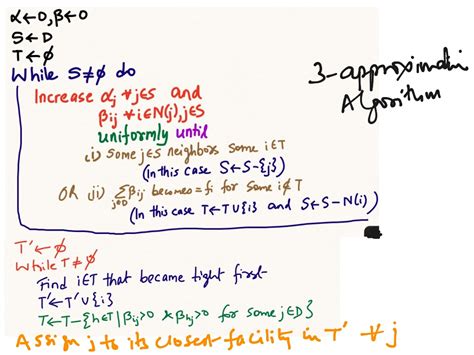 α←0, β←0
S←D
T←∅
While S≠∅ do
Increase αj ∀j∈S and
βij ∀i∈N(j), j∈S
uniformly until
(i) Some j∈S neighbors some i∈T
(in this case S←S-{j})
OR (ii) Σj∈D βij becomes = fi for some i∉T
(In this case T←T∪{i} and S←S-N(i))
3-approximation
Algorithm
T'←∅
While T≠∅
Find i∈T that became tight first
T'←T'∪{i}
T←T-{h∈T | βij>0 & βhj>0 for some j∈D}
Assign j to its closest facility in T' ∀j